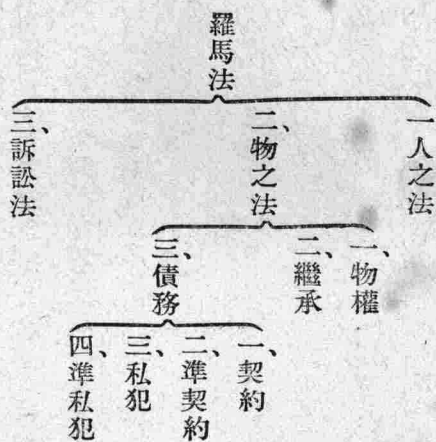 羅馬法
一人之法
二、物之法
一、物權
二、繼承
三、債務
一、契約
二、準契約
三、私犯
四、準私犯
三、訴訟法